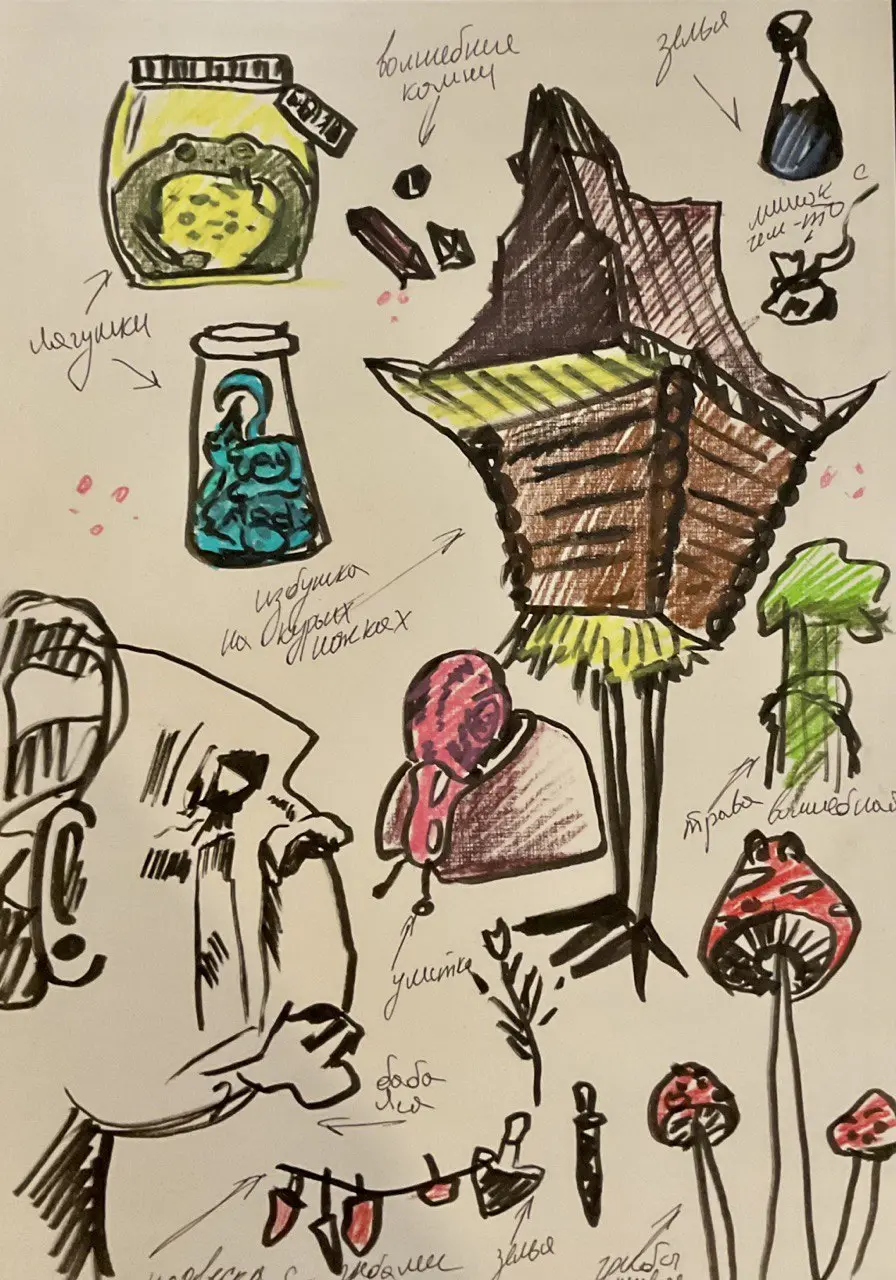 волшебные
камни
зелья
мешок с
чем-то
лягушки
избушка
на курьих
ножках
трава волшебная
улитка
баба
яга
зелья
грибы